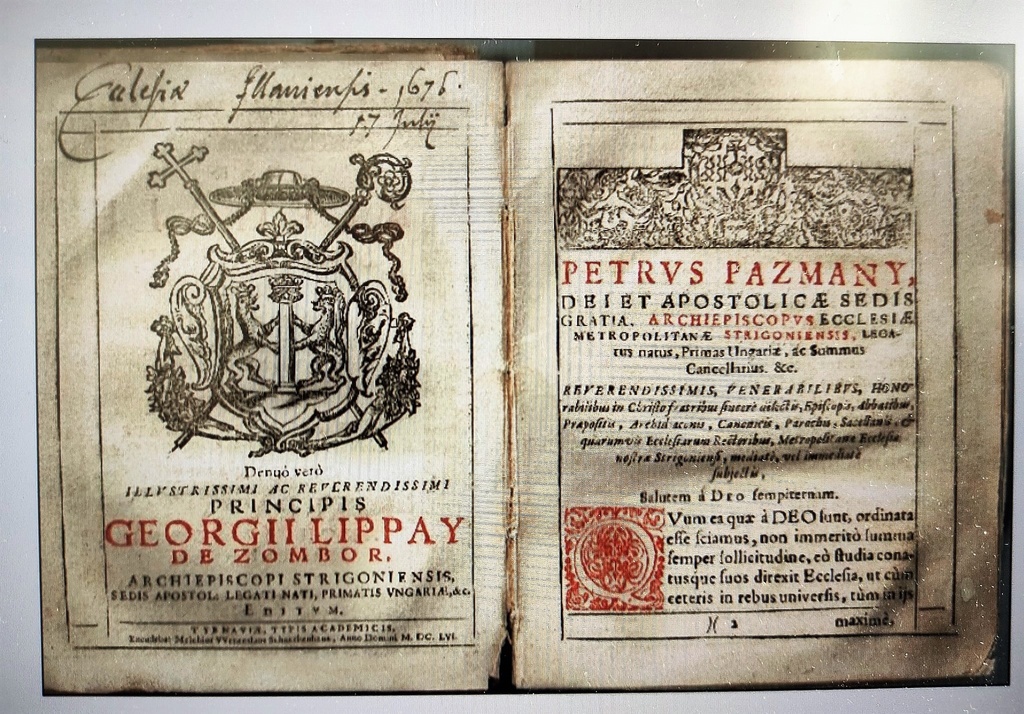 Ecclesiæ Illaviensis - 1676.
17 Julij
Denuò verò
ILLVSTRISSIMI AC REVERENDISSIMI
PRINCIPIS
GEORGII LIPPAY
DE ZOMBOR,
ARCHIEPISCOPI STRIGONIENSIS,
SEDIS APOSTOL: LEGATI NATI, PRIMATIS VNGARIÆ, &c.
EDITVM.
TYRNAVIÆ, TYPIS ACADEMICIS,
Excudebat Melchior Schneckenhaus, Anno Domini M. DC. LVI.
PETRVS PAZMANY,
DEI ET APOSTOLICÆ SEDIS
GRATIA, ARCHIEPISCOPVS ECCLESIÆ
METROPOLITANÆ STRIGONIENSIS, LEGA-
tus natus, Primas Ungariæ, ac Summus
Cancellarius. &c.
REVERENDISSIMIS, VENERABILIBVS, HONO
rabilibus in Christo fratribus sincerè dilectis, Episcopis, Abbatibus,
Præpositis, Archidiaconis, Canonicis, Parochis, Sacellanis, &
quarumvis Ecclesiarum Rectoribus, Metropolitanæ Ecclesiæ
nostræ Strigoniensi, mediatè, vel immediatè
subjectis,
Salutem à DEO sempiternam.
QVum ea quæ à DEO sunt, ordinata
esse sciamus, non immeritò summa
semper sollicitudine, eò studia cona-
tusque suos direxit Ecclesia, ut cùm
ceteris in rebus universis, tùm in ijs
)( 2 maximè,